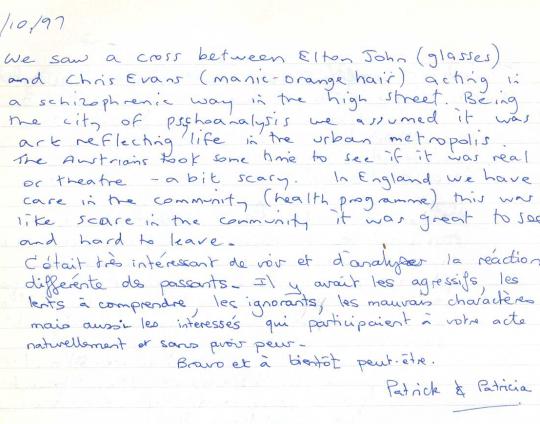 /10/97
We saw a cross between Elton John (glasses)
and Chris Evans (manic-orange hair) acting in
a schizophrenic way in the high street. Being
the city of psychoanalysis we assumed it was
art reflecting life in the urban metropolis.
The Austrians took some time to see if it was real
or theatre - a bit scary. In England we have
care in the community (health programme) this was
like scare in the community it was great to see
and hard to leave.
C'était très intéressant de voir et d'analyser la réaction
différente des passants. Il y avait les agressifs, les
lents à comprendre, les ignorants, les mauvais charactères
mais aussi les interessés qui participaient à votre acte
naturellement et sans avoir peur.
Bravo et à bientôt peut-être.
Patrick & Patricia